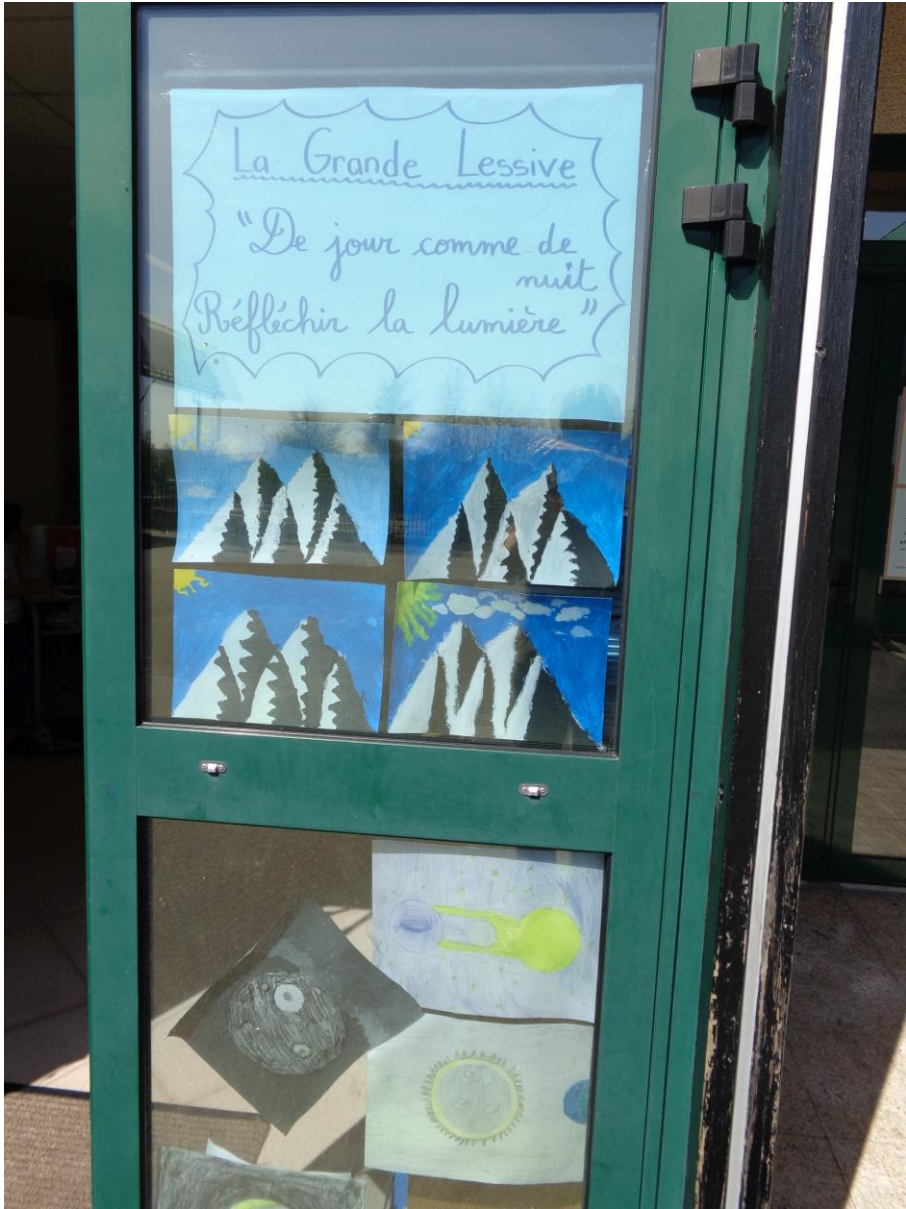 La Grande Lessive
"De jour comme de
nuit
Réfléchir la lumière"